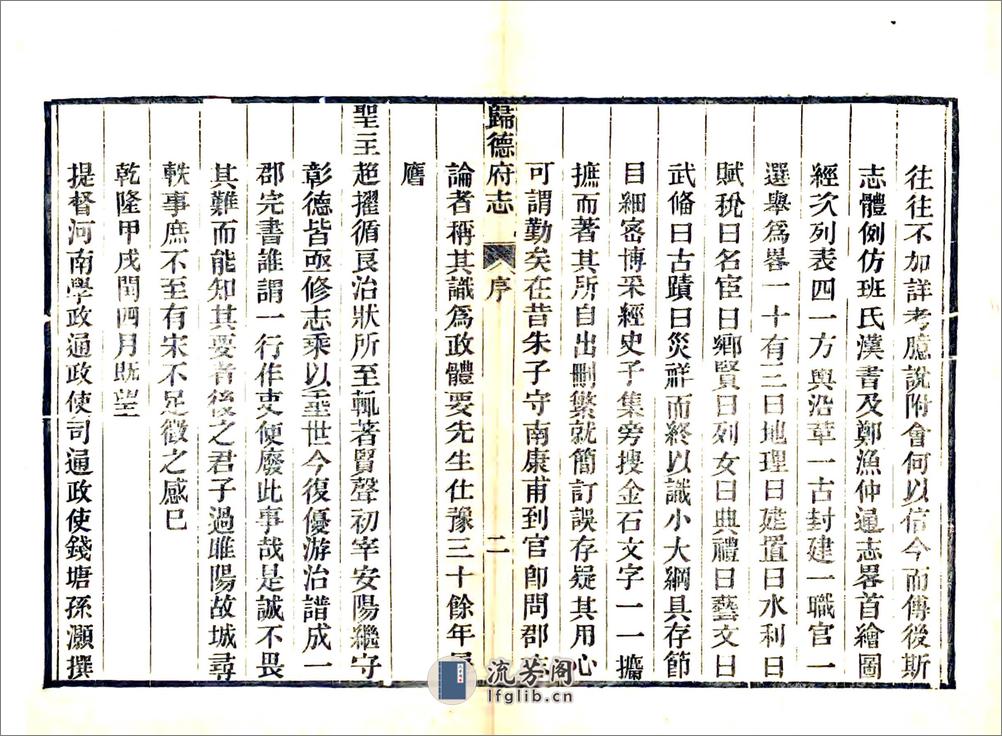 往往不加詳考臆說附會何以信今而傳後斯
志體例仿班氏漢書及鄭漁仲通志畧首繪圖
經次列表四一方輿沿革一古封建一職官一
選舉爲畧一十有三曰地理曰建置曰水利曰
賦稅曰名宦曰鄉賢曰列女曰典禮曰藝文曰
武備曰古蹟曰災祥而終以識小大綱具存節
目細密博采經史子集旁搜金石文字一一攟
摭而著其所自出刪繁就簡訂誤存疑其用心
可謂勤矣在昔朱子守南康甫到官卽問郡
論者稱其識爲政體要先生仕豫三十餘年
歸德府志 序 二
膺
聖主超擢循良治狀所至輒著賢聲初宰安陽繼守
彰德皆亟修志乘以垂世今復優游治譜成一
郡完書誰謂一行作吏便廢此事哉是誠不畏
其難而能知其要者後之君子過睢陽故城尋
軼事庶不至有宋不足徵之感已
乾隆甲戌閏四月既望
提督河南學政通政使司通政使錢塘孫灝撰
流芳閣
lfglib.cn